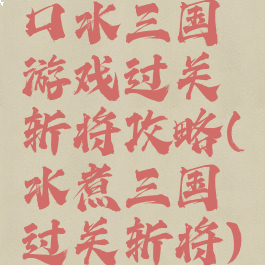 口水三国
游戏过关
斩将攻略(
水煮三国
过关斩将)